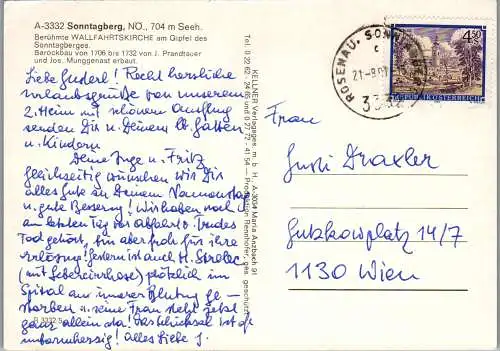 A-3332 Sonntagberg, NÖ., 704 m Seeh.
Berühmte WALLFAHRTSKIRCHE am Gipfel des
Sonntagberges.
Barockbau von 1706 bis 1732 von J. Prandtauer
und Jos. Munggenast erbaut.
Liebe Gusterl! Recht herzliche
Urlaubsgrüße von unserem
2. Heim mit schönem Ausflug
senden Dir u. Deinem lb. Gatten
u. Kindern
Deine Inge u. Fritz
Gleichzeitig wünschen wir Dir
alles Gute zu Deinem Namenstag
u. gute Besserung! Wir haben noch
am letzten Tag vor Abfahrt Trudes
Tod gehört, bin aber froh für ihre
Erlösung! Gestern ist auch H.
(mit Leberzirrhose) plötzlich im
Spital an innerer Blutung ge-
storben u. seine Frau steht jetzt
ganz allein da! Das Schicksal ist oft
unbarmherzig! Alles Liebe J.
KELLNER Verlagsges. m. b. H., A-3034 Maria Anzbach 91
Tel. 0 22 62 - 24 65 und 0 27 72 - 41 54 — Produktion Rennhofer, ges. geschützt
ROSENAU, SONN
3332
4.50
REPUBLIK ÖSTERREICH
Frau
Gusti Draxler
Gutzkowplatz 14/7
1130 Wien